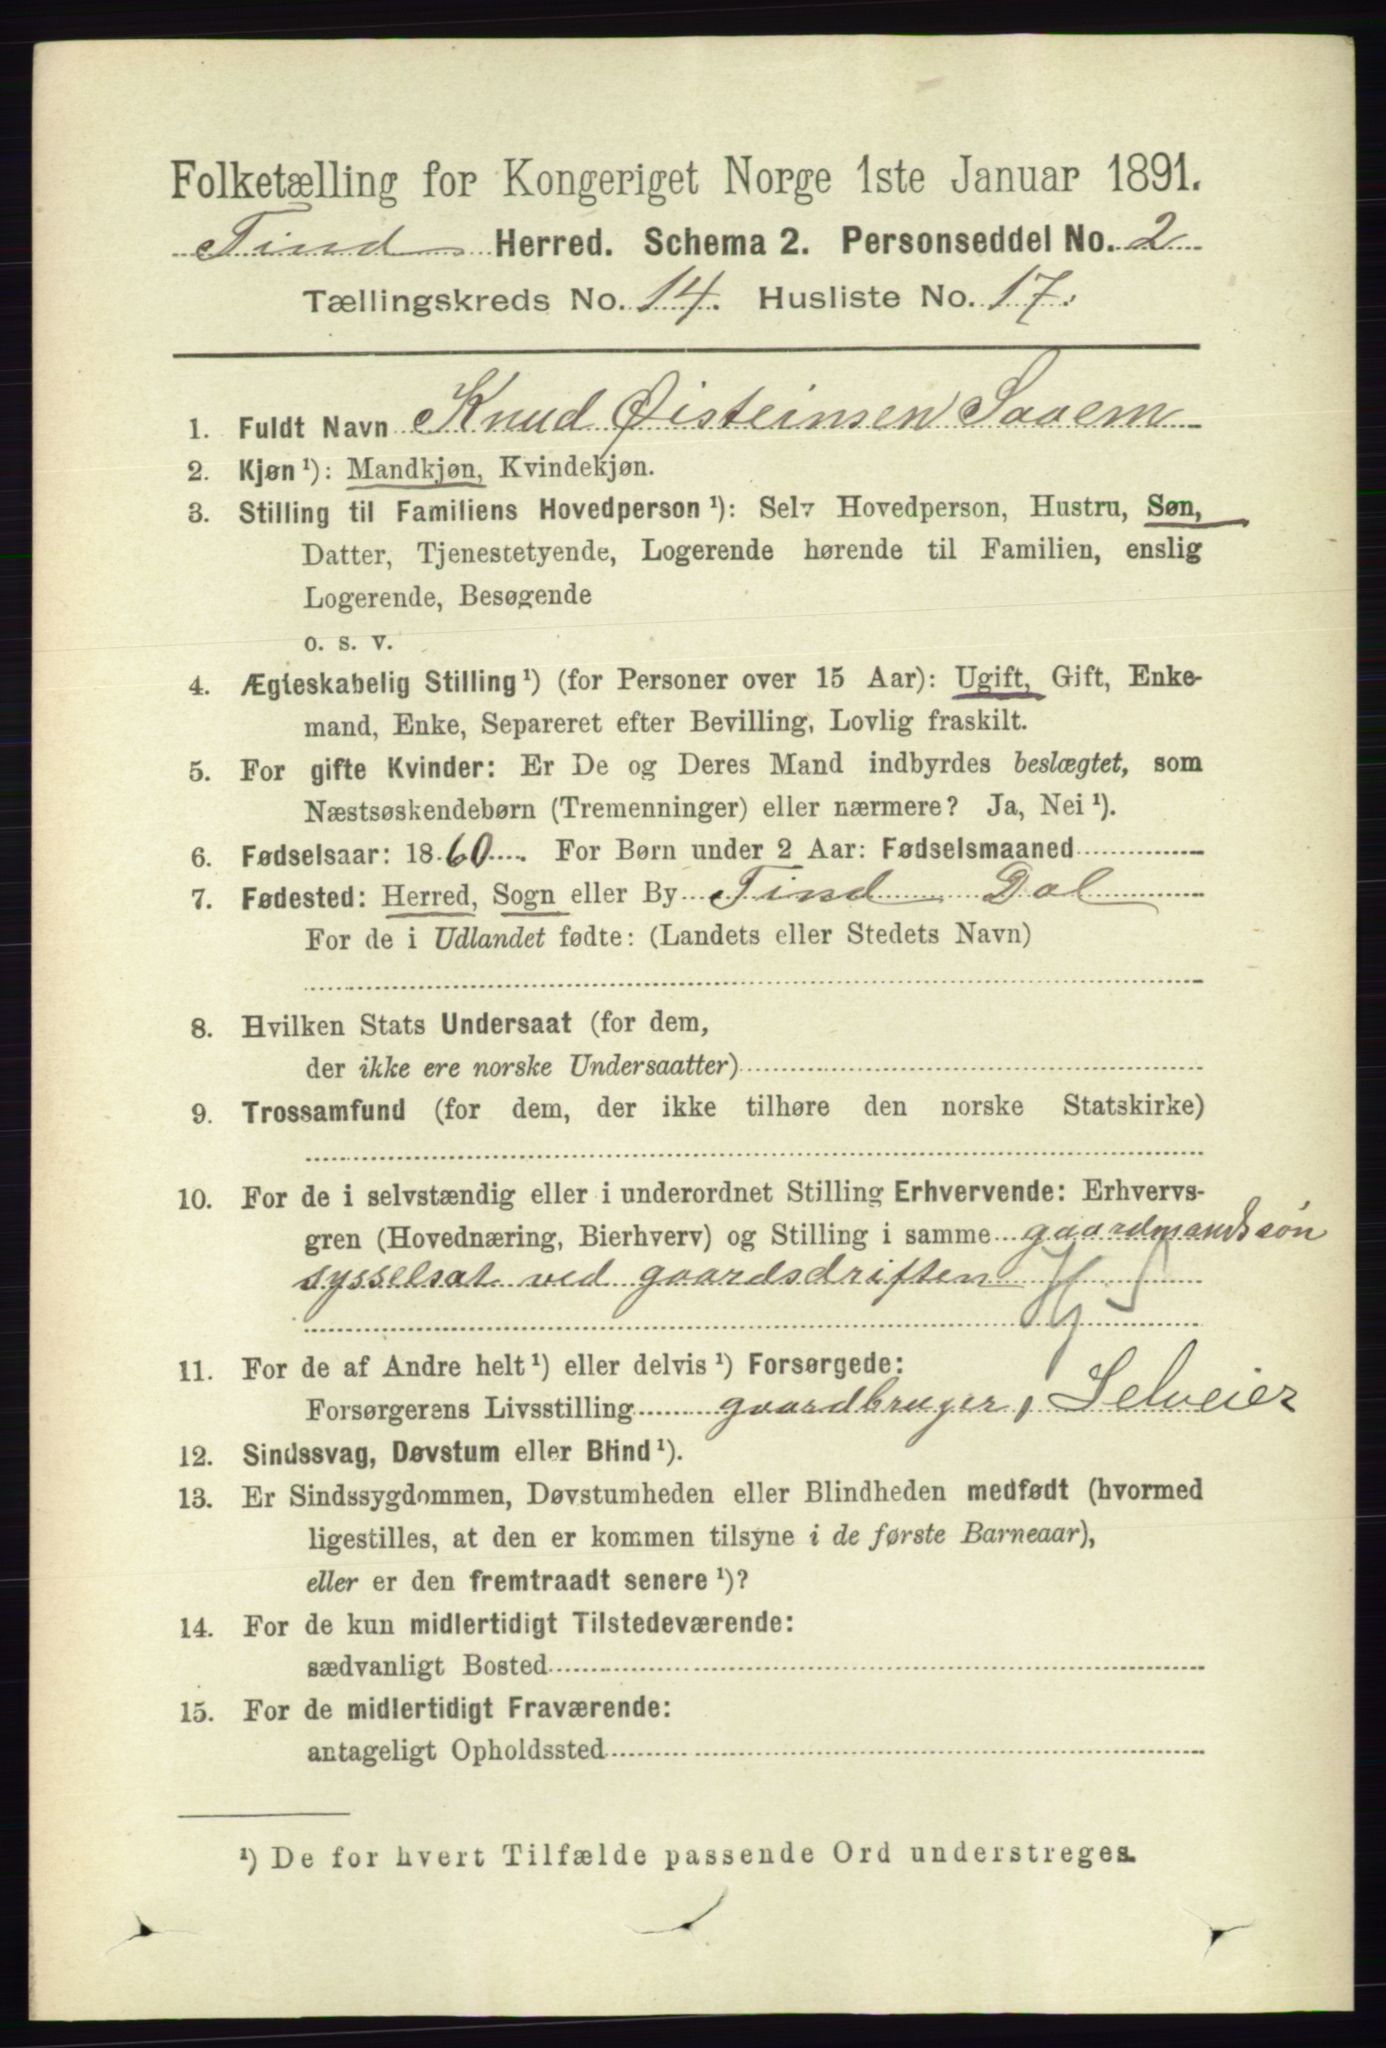 Folketælling for Kongeriget Norge 1ste Januar 1891.
Tind Herred. Schema 2. Personseddel No. 2
Tællingskreds No. 14. Husliste No. 17.
1. Fuldt Navn Knud Øisteinsen Saaem
2. Kjøn ¹): Mandkjøn, Kvindekjøn.
3. Stilling til Familiens Hovedperson ¹): Selv Hovedperson, Hustru, Søn,
Datter, Tjenestetyende, Logerende hørende til Familien, enslig
Logerende, Besøgende
o. s. v.
4. Ægteskabelig Stilling ¹) (for Personer over 15 Aar): Ugift, Gift, Enke-
mand, Enke, Separeret efter Bevilling, Lovlig fraskilt.
5. For gifte Kvinder: Er De og Deres Mand indbyrdes beslægtet, som
Næstsøskendebørn (Tremenninger) eller nærmere? Ja, Nei ¹).
6. Fødselsaar: 1860. For Børn under 2 Aar: Fødselsmaaned
7. Fødested: Herred, Sogn eller By Tind Dal
For de i Udlandet fødte: (Landets eller Stedets Navn)
8. Hvilken Stats Undersaat (for dem,
der ikke ere norske Undersaatter)
9. Trossamfund (for dem, der ikke tilhøre den norske Statskirke)
10. For de i selvstændig eller i underordnet Stilling Erhvervende: Erhvervs-
gren (Hovednæring, Bierhverv) og Stilling i samme gaardmandssøn
sysselsat ved gaardsdriften
11. For de af Andre helt ¹) eller delvis ¹) Forsørgede:
Forsørgerens Livsstilling gaardbruger, Selveier
12. Sindssvag, Døvstum eller Blind ¹).
13. Er Sindssygdommen, Døvstumheden eller Blindheden medfødt (hvormed
ligestilles, at den er kommen tilsyne i de første Barneaar),
eller er den fremtraadt senere ¹)?
14. For de kun midlertidigt Tilstedeværende:
sædvanligt Bosted
15. For de midlertidigt Fraværende:
antageligt Opholdssted
¹) De for hvert Tilfælde passende Ord understreges.